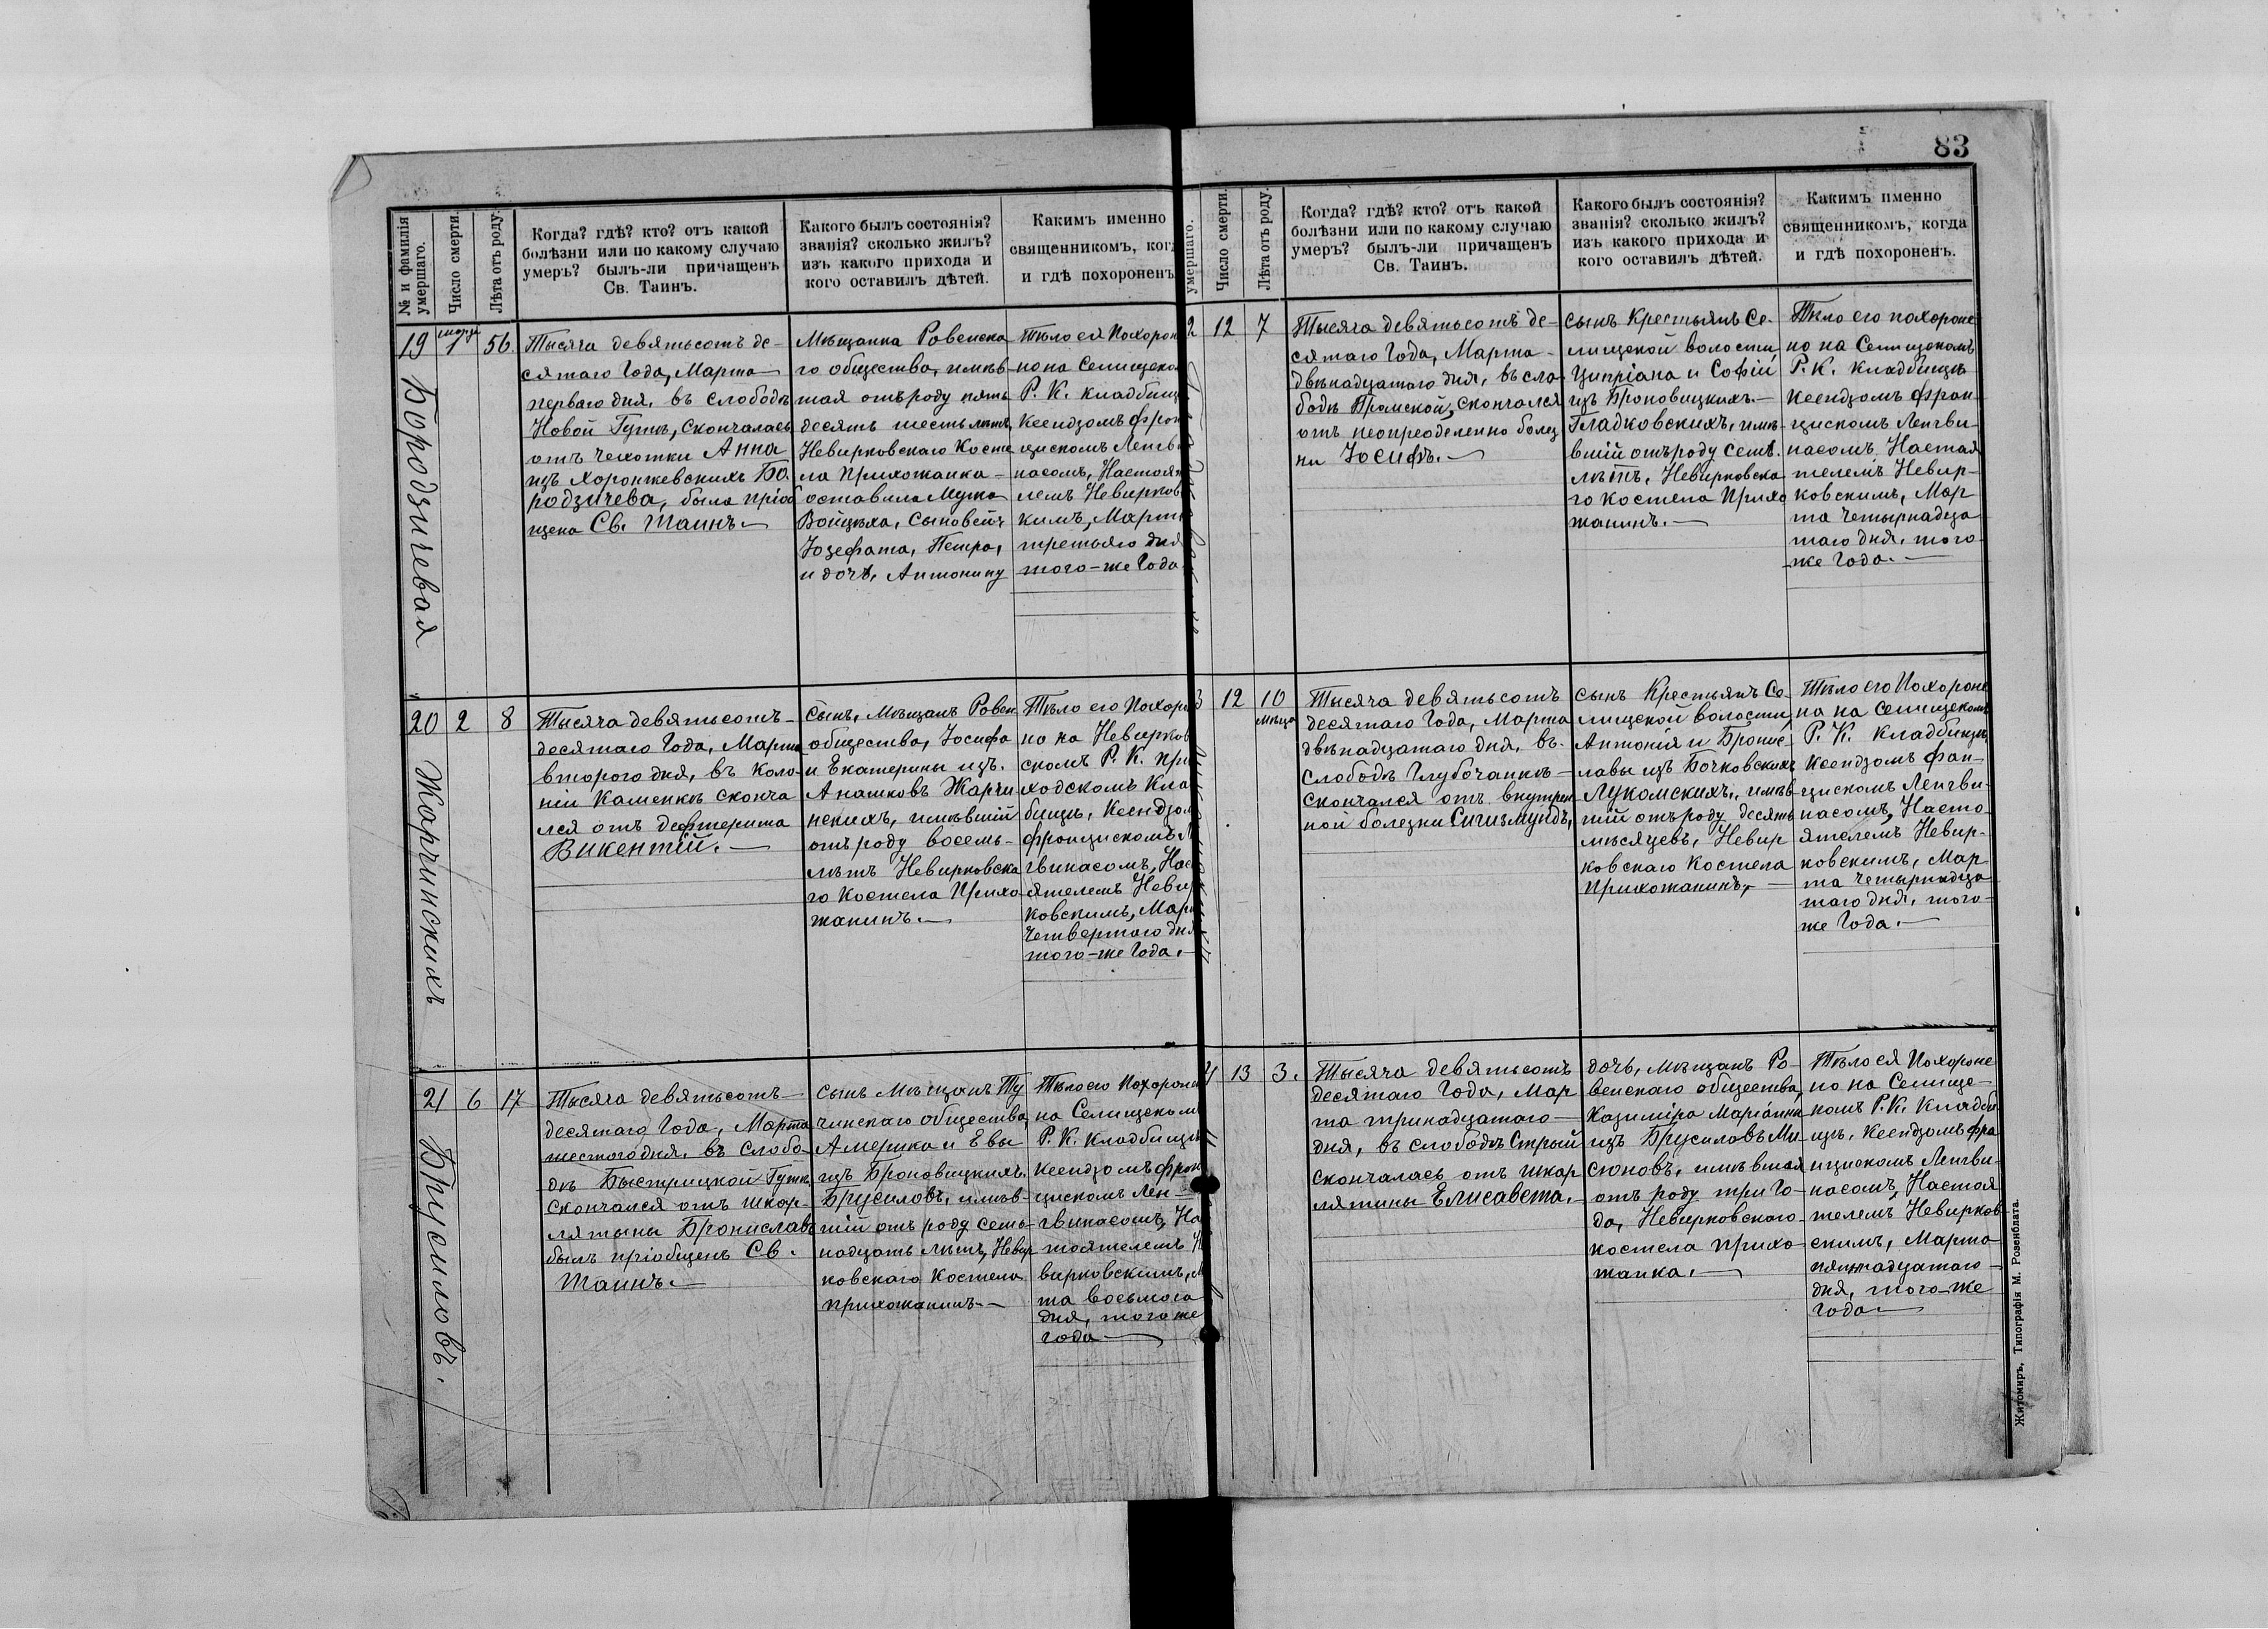 83
№ и фамилія
умершаго.
Число смерти.
Лѣта отъ роду.
Когда? гдѣ? кто? отъ какой
болѣзни или по какому случаю
умеръ? былъ-ли причащенъ
Св. Таинъ.
Какого былъ состоянія?
званія? сколько жилъ?
изъ какого прихода и
кого оставилъ дѣтей.
Какимъ именно
священникомъ, ког
и гдѣ похороненъ
19
марта
1
56
Бородзичевая
Тысяча девятьсотъ де-
сятаго Года, Марта
перваго дня, въ слободѣ
Новой Гутѣ, скончалась
отъ чахотки Анна
изъ Хоронжевскихъ Бо.
родзичева, была пріоб
щена Св. Таинъ.
Мѣщанка Ровенска
го общества, имѣв-
шая отъ роду пять
десять шесть лѣтъ,
Невирковскаго Косте
ла Прихожанка -
оставила Мужа
Войцѣха, сыновей:
Іозефата, Петра,
и дочь, Антонину
Тѣло ея Похорон
но на Селищеко
Р. К. кладбищ
Ксендзомъ Фран
цискомъ Ленгви
насомъ, Настоят
лемъ Невирков
кимъ, Марта
третьяго дня
того-же Года
20
2
8
Жарчинскихъ
Тысяча девятьсотъ-
десятаго Года, Марта
второго дня, въ Коло
ніи Каменкѣ сконча
лся отъ дефтерита
Викентій.
Сынъ, Мѣщанъ Ровен
общества, Іосифа
и Екатерины изъ.
Анашковъ Жарчи
нскихъ, имѣвшій
отъ роду восемь-
лѣтъ Невирковска
го Костела Прихо
жанинъ.
Тѣло его Похоро
но на Невирков
скомъ Р. К. при
ходскомъ Кла
бищѣ, Ксендзом
Францискомъ Л
гвинасомъ, Нас
ятелемъ Невир
ковскимъ, Март
Четвертаго дня
того-же Года.
21
6
17
Брусиловъ.
Тысяча девятьсотъ-
десятаго Года, Марта
шестого дня, въ Слобо
дѣ Быстрицкой Гутѣ
скончался отъ шкар-
лятыны Брониславъ
былъ пріобщенъ Св.
Таинъ.
Сынъ Мѣщанъ Ту
чинскаго общества,
Америка и Евы
изъ Броновицкихъ.
Брусиловъ, имѣв-
шій отъ роду семь-
надцать лѣтъ, Невир
ковскаго Костела
прихожанинъ.
Тѣло его Похороне
на Селищеком
Р. К. Кладбищѣ
Ксендзомъ Фран
цискомъ Лен-
гвинасомъ, На
тоятелемъ Н
вирковскимъ, М
та восьмого
дня, того же
года
умершаго.
Число смерти.
Лѣта отъ роду.
Когда? гдѣ? кто? отъ какой
болѣзни или по какому случаю
умеръ? былъ-ли причащенъ
Св. Таинъ.
Какого былъ состоянія?
званія? сколько жилъ?
изъ какого прихода и
кого оставилъ дѣтей.
Какимъ именно
священникомъ, когда
и гдѣ похороненъ.
2
12
7
Тысяча девятьсотъ де-
сятаго Года, Марта
двѣнадцатаго дня, въ сло
бодѣ Прамской, скончался
отъ неопределенно болез
ни Іосифъ.
Сынъ Крестьянъ Се-
лищской волости,
Ципріана и Софіи
изъ Броновицкихъ.
Гладковскихъ, имѣ-
вшій отъ роду семь
лѣтъ, Невирковска
го костела Прихо
жанинъ.
Тѣло его похороне
но на Селищекомъ
Р. К. кладбищѣ
Ксендзомъ Фран-
цискомъ Ленгви-
насомъ, Настоя
телемъ Невир-
ковскимъ, Мар
та четырнадца
таго дня, того
же Года.
3
12
10
мѣца
Тысяча девятьсотъ
десятаго Года, Марта
двѣнадцатаго дня, въ.
Слободѣ Глубочанкѣ
скончался отъ внутрен
ной болезни Сигизмундъ,
сынъ Крестьянъ Се-
лищской волости,
Антонія и Бронис-
лавы изъ Бочковскихъ
Лукомскихъ, имѣв
шій отъ роду десять
мѣсяцевъ, Невир
ковскаго Костела
Прихожанинъ,
Тѣло его Похороне
на на Селищекомъ
Р. К. кладбищѣ,
Ксендзомъ Фан-
цискомъ Ленгви-
насомъ, Насто-
ятелемъ Невир-
ковскимъ, Мар
та четырнадца
таго дня, того-
же Года.
4
13
3.
Тысяча девятьсотъ
десятаго Года, Мар
та тринадцатаго
дня, въ слободѣ Стрый
скончалась отъ шкар
лятины Елисавета.
дочь, Мѣщанъ Ро-
венскаго общества,
Казиміра Маріанны
изъ Брусиловъ Ми-
сюновъ, имѣвшая
отъ роду три Го-
да, Невирковскаго
костела прихо
жанка.
Тѣло ея Похороне
но на Селище-
комъ Р. К. Кладби
щѣ, Ксендзомъ Фра
нцискомъ Ленгви-
насомъ, Настоя
телемъ Невирков
скимъ, Марта
пятнадцатаго
дня, того-же
Года
Житомиръ, Типографія М. Розенблата.